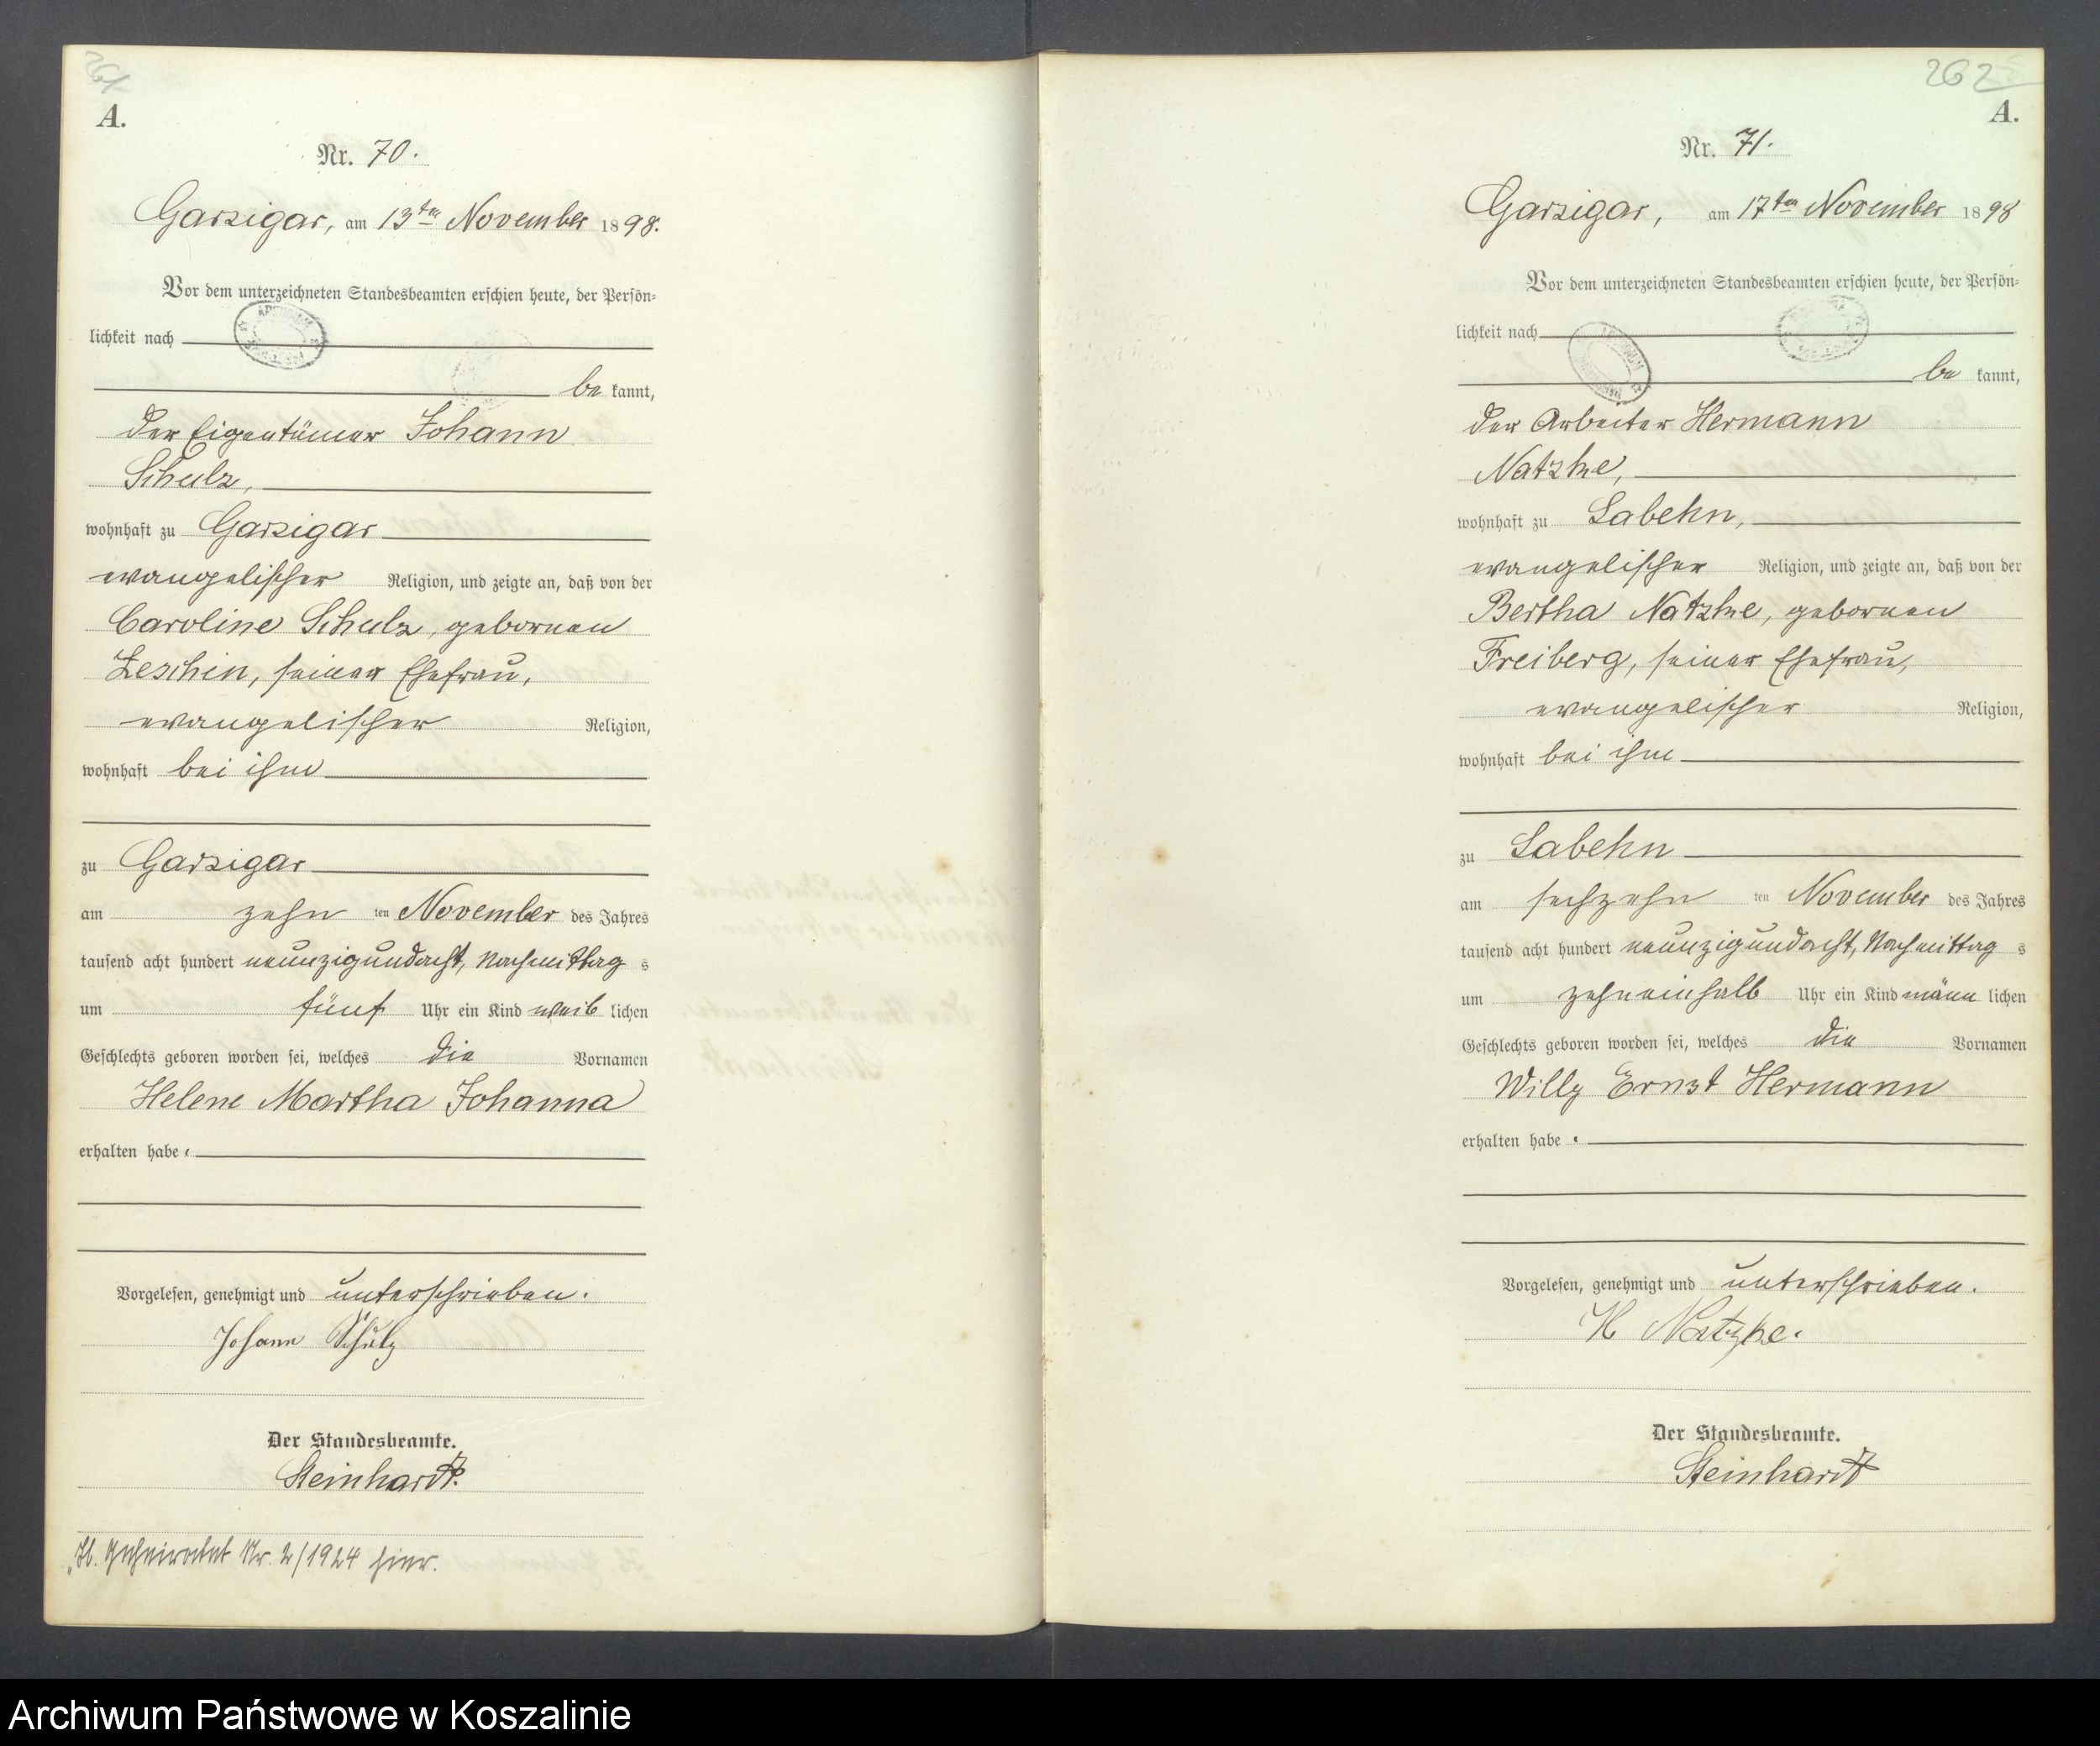 261
A.
Nr. 70.
Garzigar, am 13ten November 1898.
Vor dem unterzeichneten Standesbeamten erschien heute, der Persön=
lichkeit nach
be kannt,
der Eigentümer Johann
Schulz,
wohnhaft zu Garzigar
evangelischer Religion, und zeigte an, daß von der
Caroline Schulz, gebornen
Zeschin, seiner Ehefrau,
evangelischer Religion,
wohnhaft bei ihm
zu Garzigar
am zehn ten November des Jahres
tausend acht hundert neunzigundacht, Nachmittag s
um fünf Uhr ein Kind weib lichen
Geschlechts geboren worden sei, welches die Vornamen
Helene Martha Johanna
erhalten habe.
Vorgelesen, genehmigt und unterschrieben.
Johann Schulz
Der Standesbeamte.
Steinhardt.
Nr. 2/1924 hier.
262
A.
Nr. 71.
Garzigar, am 17ten November 1898
Vor dem unterzeichneten Standesbeamten erschien heute, der Persön=
lichkeit nach
be kannt,
der Arbeiter Hermann
Natzke,
wohnhaft zu Labehn,
evangelischer Religion, und zeigte an, daß von der
Bertha Natzke, gebornen
Freiberg, seiner Ehefrau,
evangelischer Religion,
wohnhaft bei ihm
zu Labehn
am sechzehn ten November des Jahres
tausend acht hundert neunzigundacht, Nachmittag s
um zehneinhalb Uhr ein Kind männ lichen
Geschlechts geboren worden sei, welches die Vornamen
Willy Ernst Hermann
erhalten habe.
Vorgelesen, genehmigt und unterschrieben.
H Natzke.
Der Standesbeamte.
Steinhardt
Archiwum Państwowe w Koszalinie